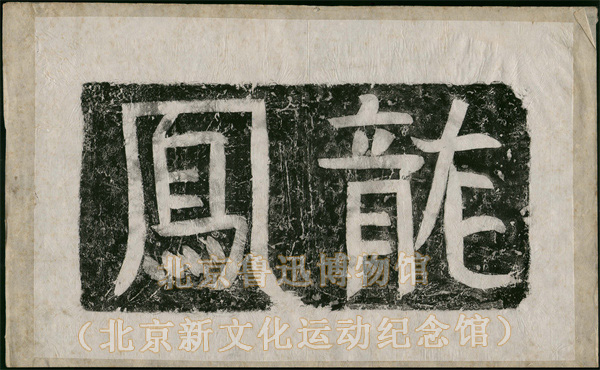 龍鳳
北京鲁迅博物馆
（北京新文化运动纪念馆）